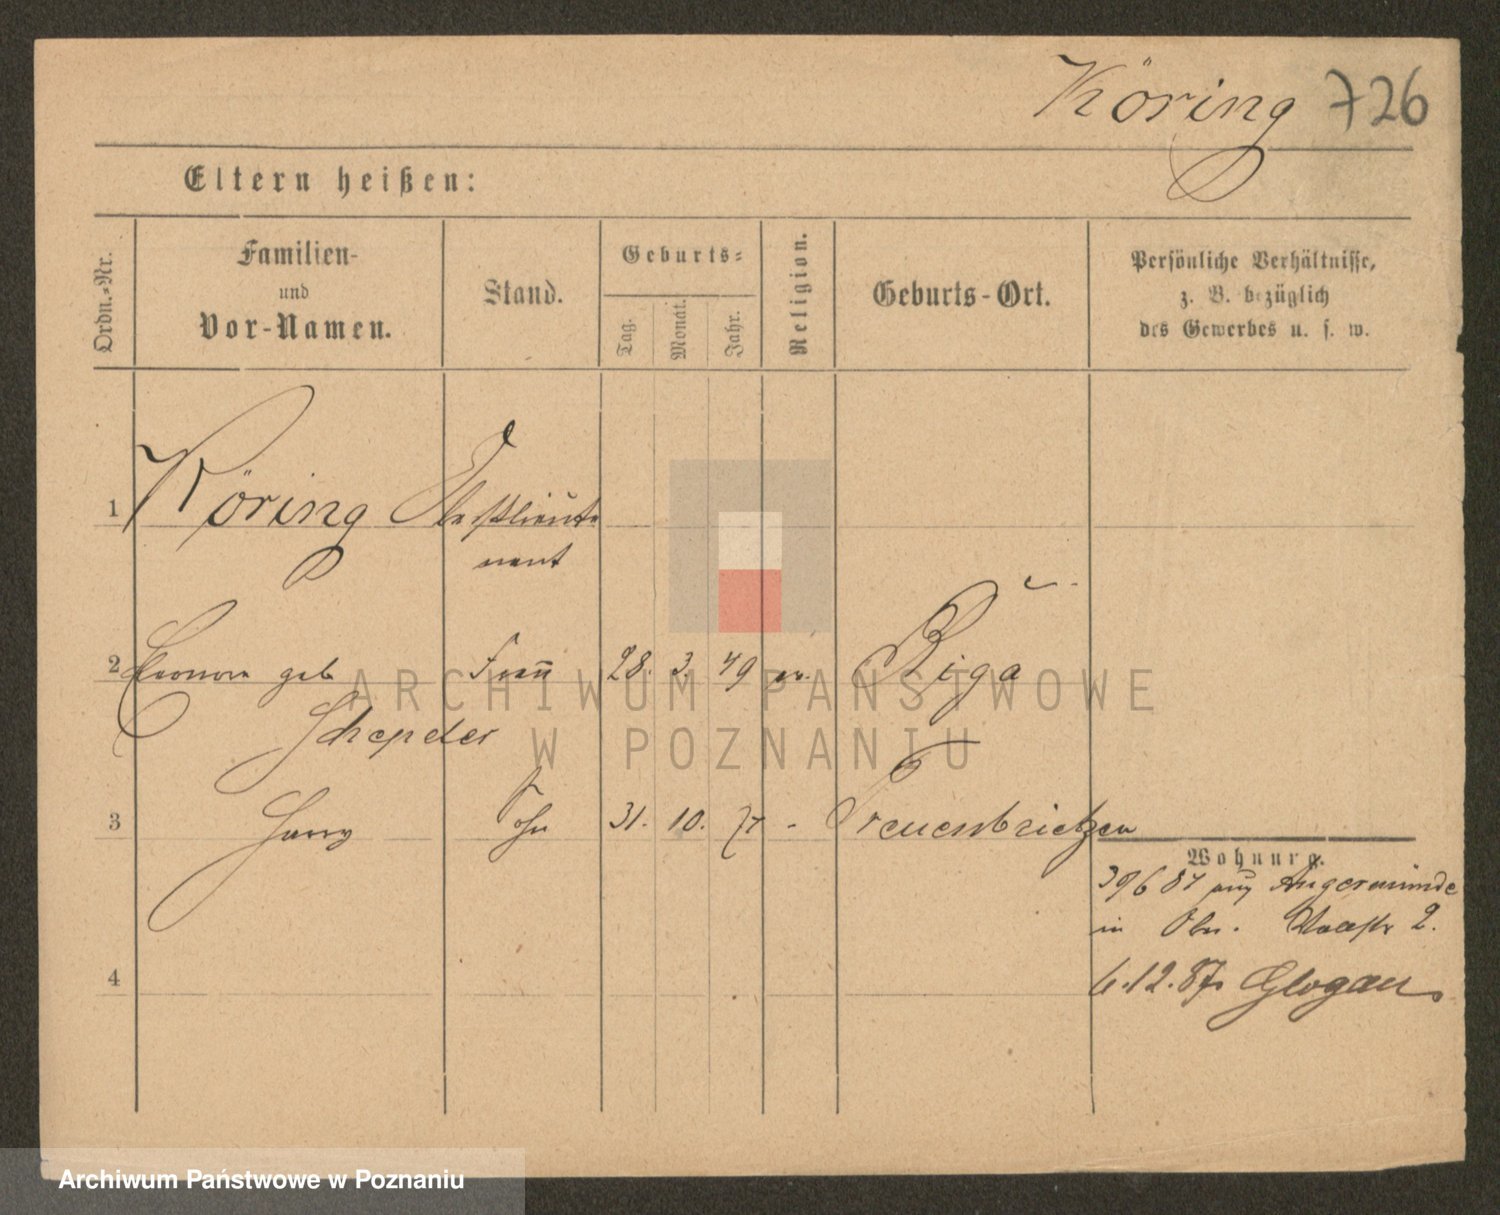 Köring 726
Eltern heißen:
Ordn.-Nr.
Familien-
und
Vor-Namen.
Stand.
Geburts-
Tag.
Monat.
Jahr.
Religion.
Geburts-Ort.
Persönliche Verhältnisse,
z. B. bezüglich
des Gewerbes u. s. w.
1 Köring Oberstlieute
nant
2 Leonore geb Frau 28. 3. 49 ev. Riga
Schepeler
3 Harry Sohn 31. 10. - Treuenbrietzen
Wohnung.
Angermünde
in 2.
4
6.12.87. Glogau
ARCHIWUM PAŃSTWOWE
W POZNANIU
Archiwum Państwowe w Poznaniu